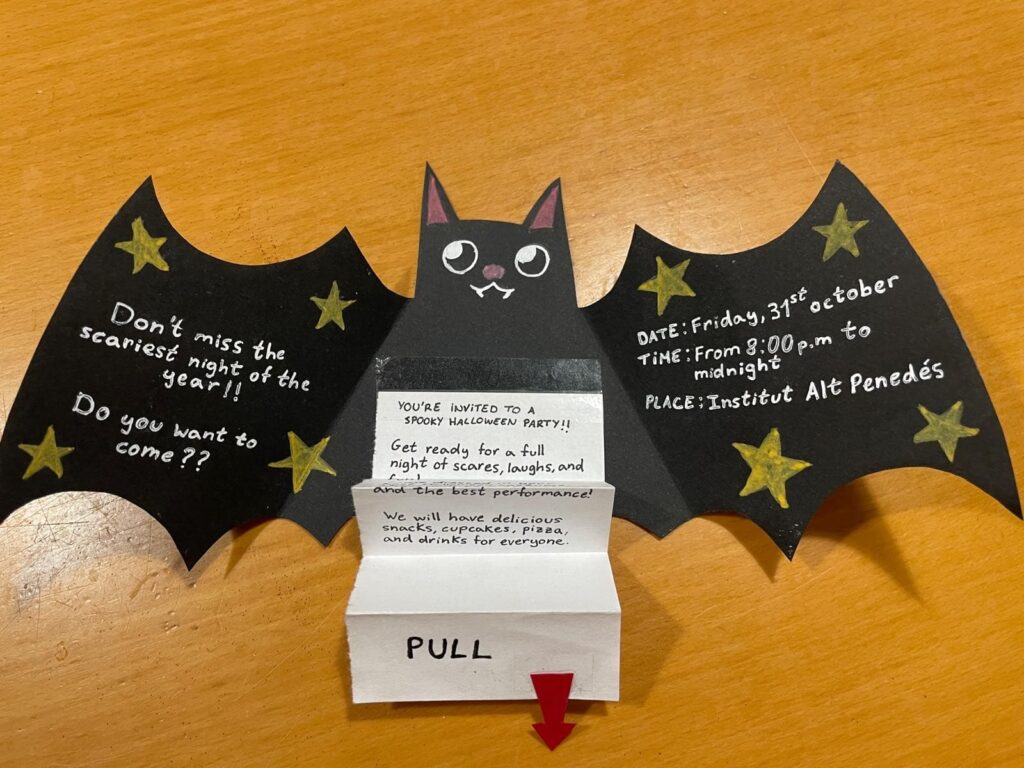 Don't miss the
scariest night of the
year!!
Do you want to
come??
YOU'RE INVITED TO A
SPOOKY HALLOWEEN PARTY!!
Get ready for a full
night of scares, laughs, and
and the best performance!
We will have delicious
snacks, cupcakes, pizza,
and drinks for everyone.
PULL
DATE: Friday, 31st october
TIME: From 8:00 p.m to
midnight
PLACE: Institut Alt Penedés